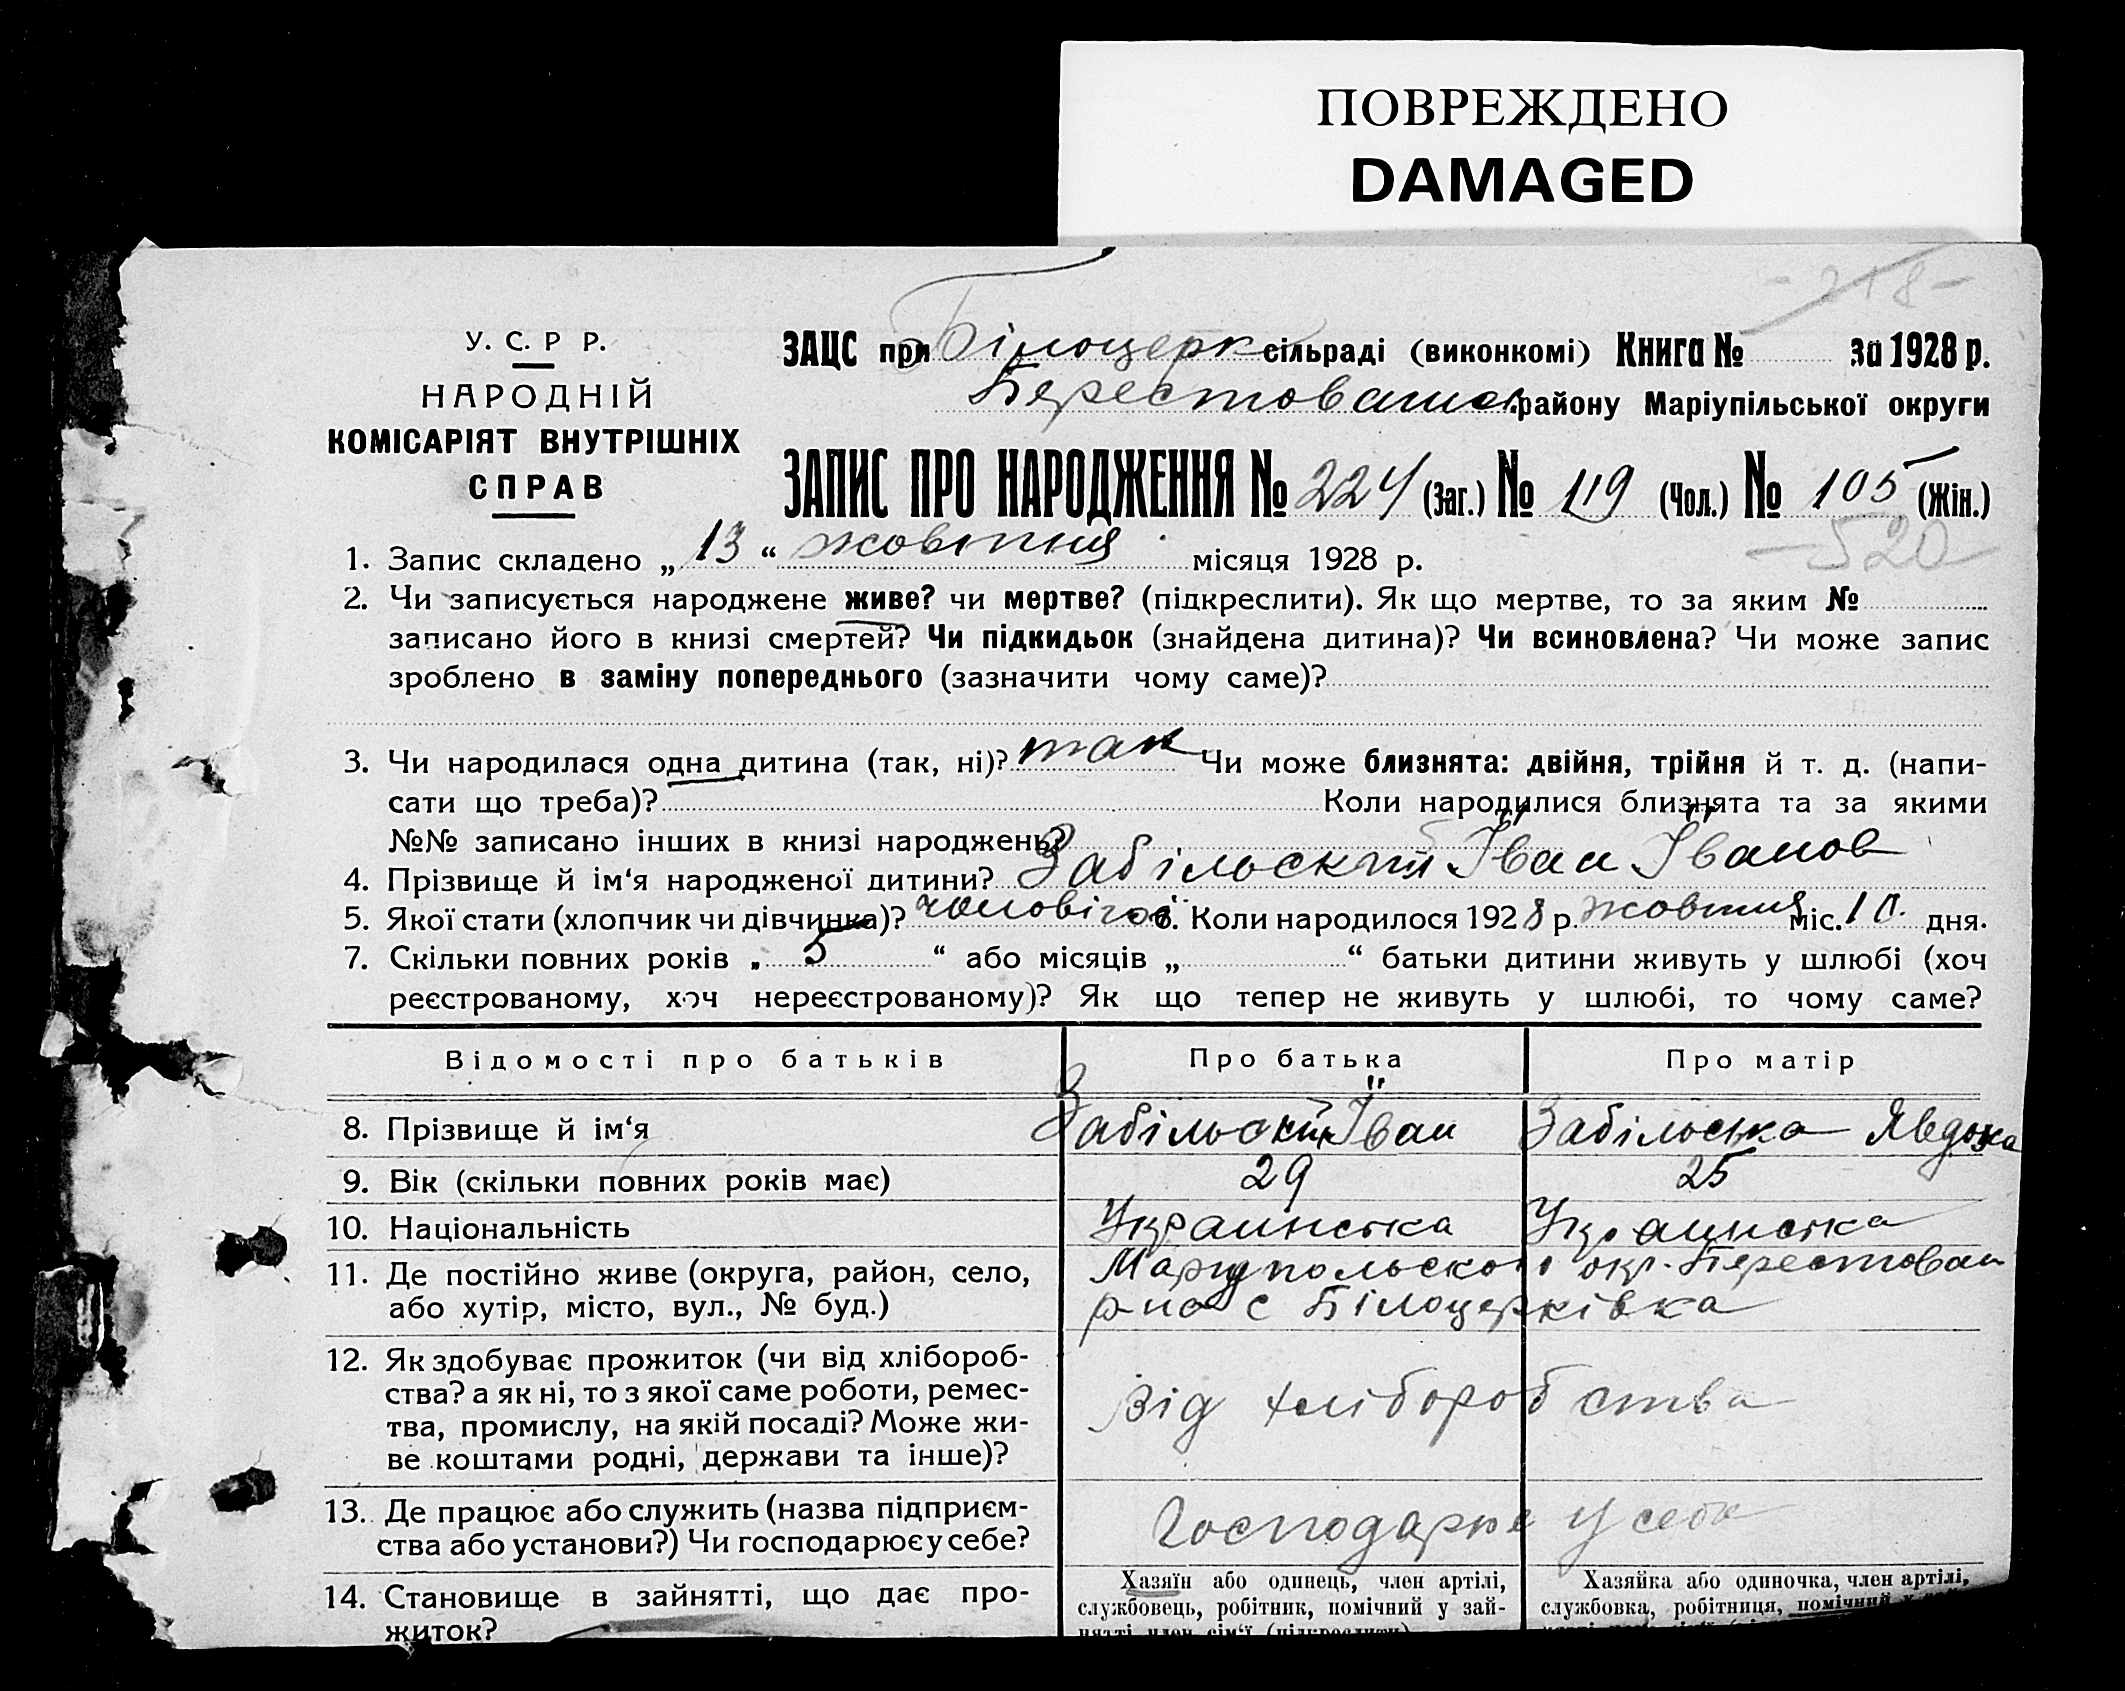 ПОВРЕЖДЕНО
DAMAGED
-218-
У. С. Р Р.
НАРОДНІЙ
КОМІСАРІЯТ ВНУТРІШНІХ
СПРАВ
ЗАЦС при Білоцерк сільраді (виконкомі) Книга № за 1928 р.
Берестованск району Маріупільської округи
ЗАПИС ПРО НАРОДЖЕННЯ № 224 (Заг.) № 119 (Чол.) № 105 (Жін.)
520
1. Запис складено „ 13 “ жовтня місяця 1928 р.
2. Чи записується народжене живе? чи мертве? (підкреслити). Як що мертве, то за яким №
записано його в книзі смертей? Чи підкидьок (знайдена дитина)? Чи всиновлена? Чи може запис
зроблено в заміну попереднього (зазначити чому саме)?
3. Чи народилася одна дитина (так, ні)? так Чи може близнята: двійня, трійня й т. д. (напи-
сати що треба)? Коли народилися близнята та за якими
№№ записано інших в книзі народжень?
4. Прізвище й ім‘я народженої дитини? Забільский Іван Іванов
5. Якої стати (хлопчик чи дівчинка)? чоловічої 6. Коли народилося 1928 р. жовтня міс. 10 дня.
7. Скільки повних років „ 5 “ або місяців „ “ батьки дитини живуть у шлюбі (хоч
реєстрованому, хоч нереєстрованому)? Як що тепер не живуть у шлюбі, то чому саме?
Відомості про батьків Про батька Про матір
8. Прізвище й ім‘я Забільский Іван Забільська Явдоха
9. Вік (скільки повних років має) 29 25
10. Національність Украинська Украинська
11. Де постійно живе (округа, район, село, Мариупольскоі окр. Берестован
або хутір, місто, вул., № буд.) с Білоцерківка
12. Як здобуває прожиток (чи від хлібороб-
ства? а як ні, то з якої саме роботи, ремес- Від хліборобства
тва, промислу, на якій посаді? Може жи-
ве коштами родні, держави та інше)?
13. Де працює або служить (назва підприєм- Господарює у себе
ства або установи?) Чи господарює у себе?
14. Становище в зайнятті, що дає про-
житок?
Хазяїн або одинець, член артілі,
службовець, робітник, помічний у зай-
нятті член сім‘ї (підкреслити)
Хазяйка або одиночка, член артілі,
службовка, робітниця, помічний у